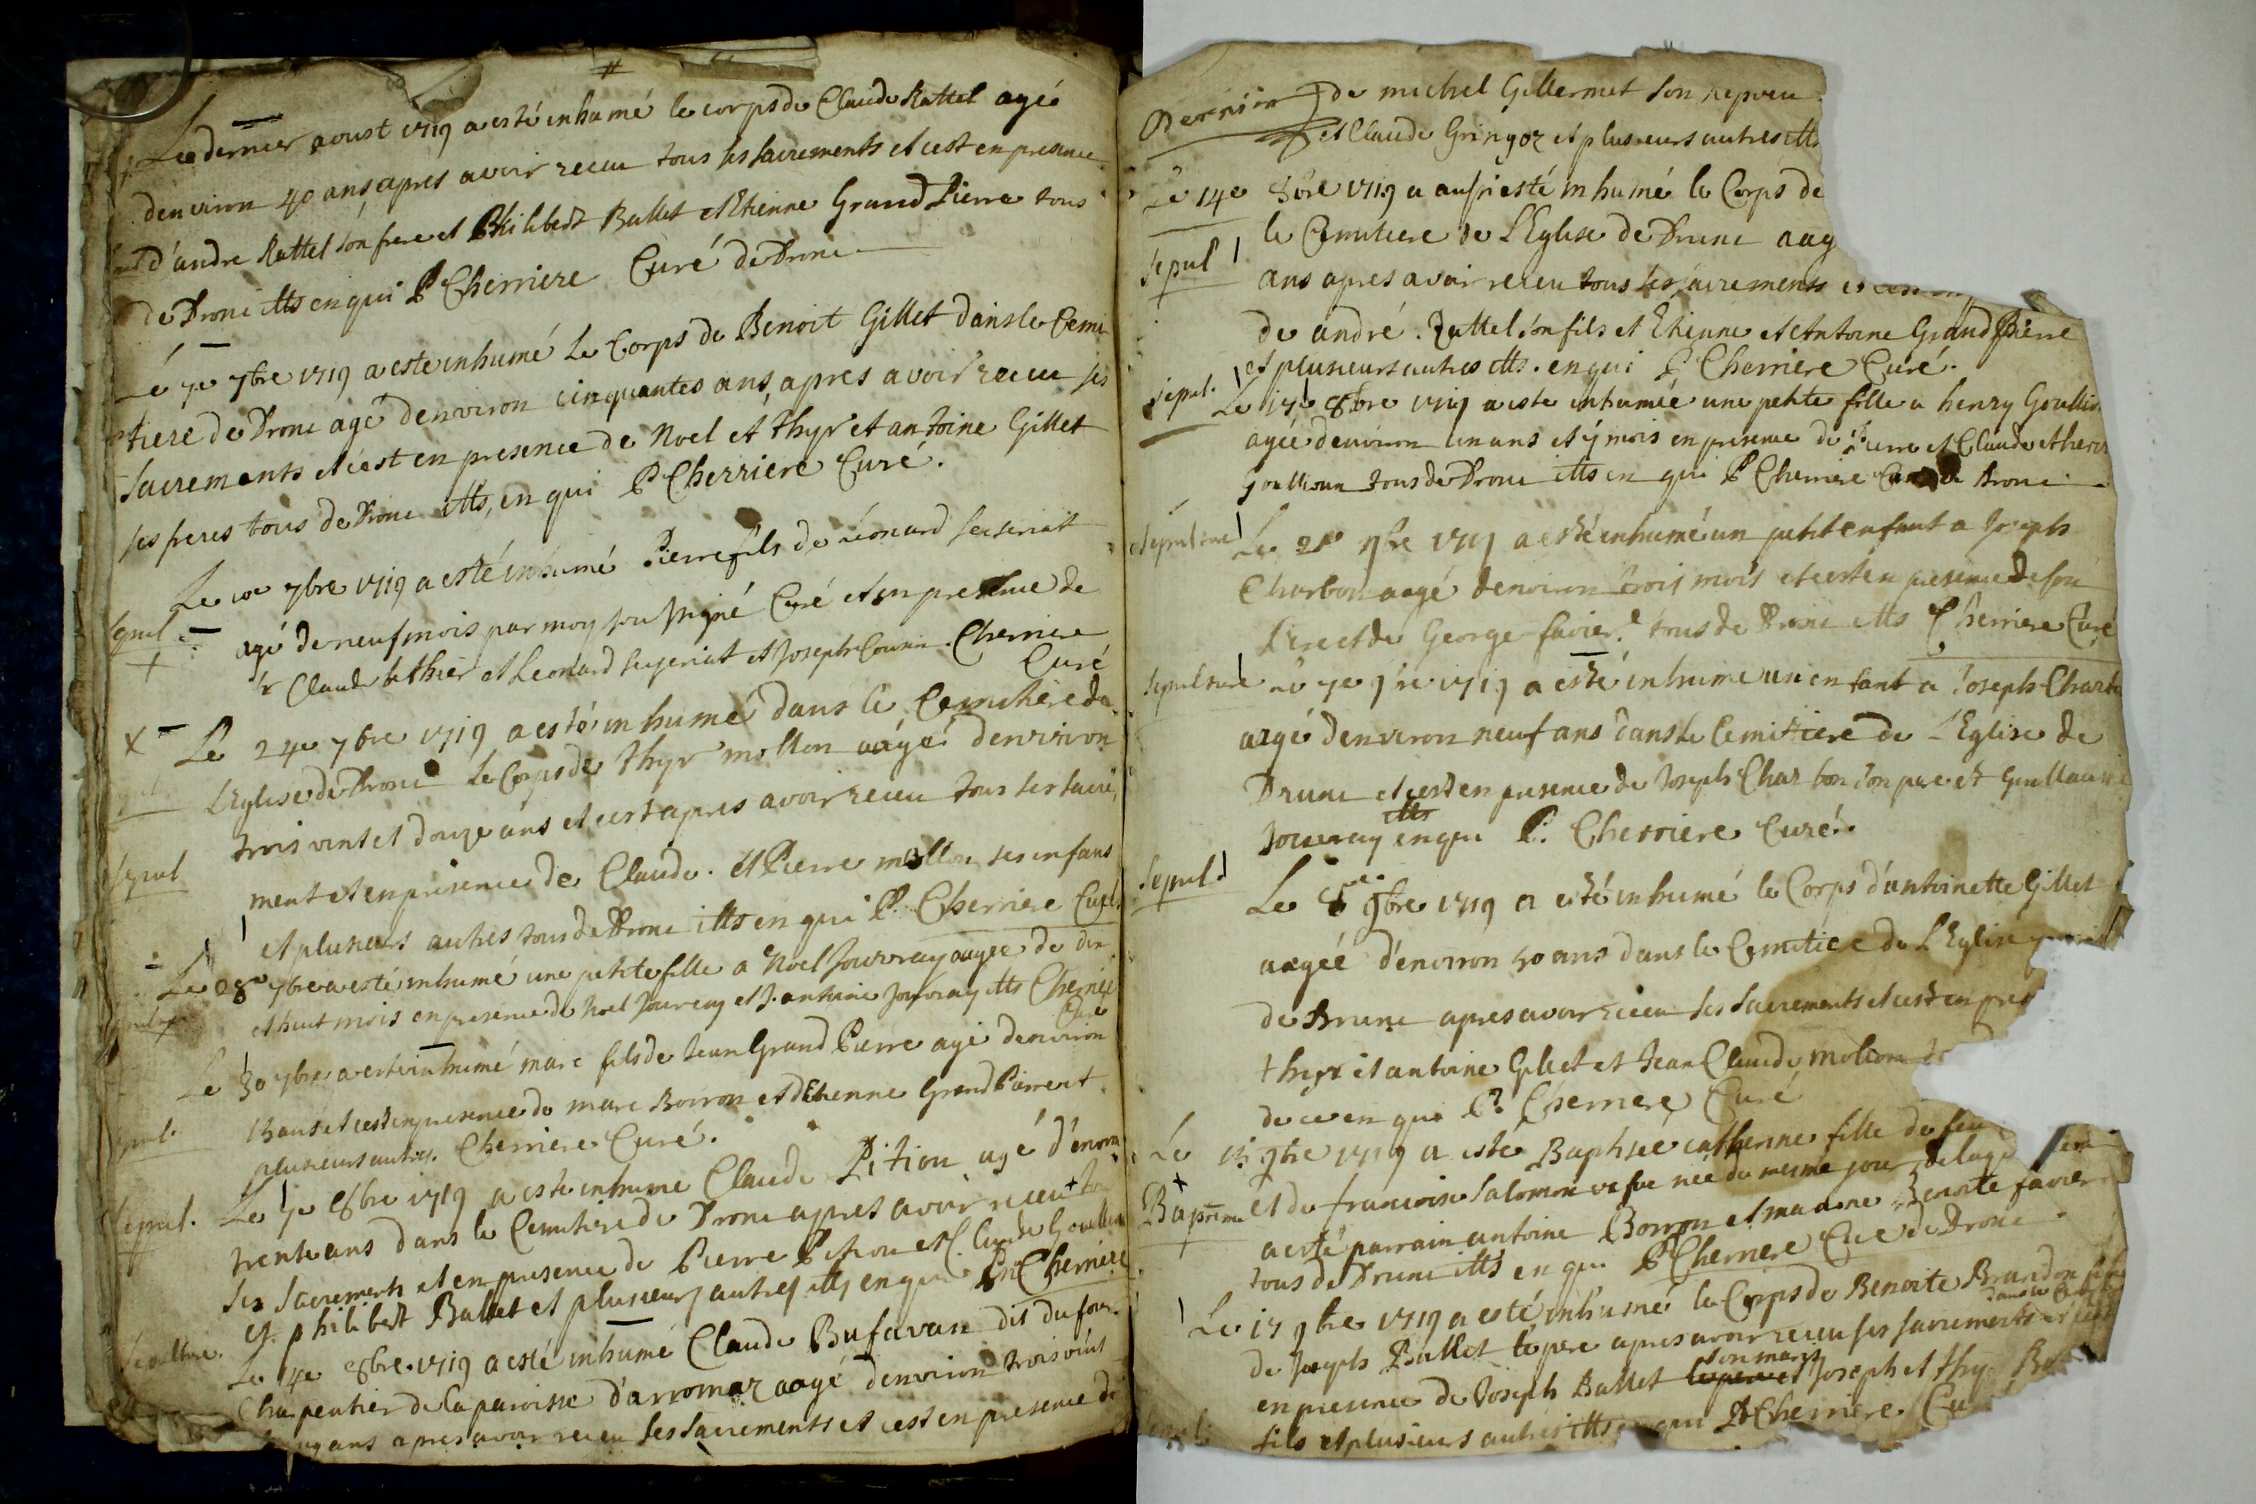 Le dernier aoust 1719 a esté inhumé le corps de Claude Rattel agé
denviron 40 ans, apres avoir receu tous ses sacrements et cest en presence
d'andre Rattel son frere et Philibert Ballet et Etienne Grand Pierre tous
de Dronc itts en qui P Cherriere Curé de Dronc
Le 7e 7bre 1719 a esté inhumé Le Corps de Benoit Gillet dans le Cemi
tiere de Dronc agé denviron cinquantes ans, apres avoir receu ses
Sacrements et cest en presence de Noel et thyr et antoine Gillet
ses freres tous de Dronc itts, en qui P Cherriere Curé.
Le 10e 7bre 1719 a esté inhumé Pierre fils de Léonard
Sepul agé de neuf mois par moy sousigné Curé et en presence de
Claude et Leonard et Joseph Cherriere
Curé
Le 24e 7bre 1719 a esté inhumé dans le Cemitiere de
L'Eglise de Dronc Le Corps de thyr mollon aagé denviron
trois vint et douze ans et cest apres avoir receu tous ses sacre
Sepul
ment et en presence de Claude. et Pierre mollon ses enfans
et plusieurs autres tous de Dronc itts en qui P. Cherriere Curé
Le 28e 7bre a esté inhumé une petite fille a Noel Jouvray aagée de dix
et huit mois en presence de Noel Jouvray et J. antoine Jouvray itts Cherriere
Curé
Le 30 7bre a esté inhumé marc fils de Jean Grand Pierre agé denviron
13 ans et cest en presence de marc Boiron et d'Etienne Grand Pierre et
plusieurs autres. Cherriere Curé.
Sepul. Le 7e 8bre 1719 a esté inhumé Claude Pition agé d'environ
trente ans dans le Cemitiere de Dronc apres avoir receu
ses Sacrements et en presence de Pierre Pition et Claude
et philibert Ballet et plusieurs autres itts en qui Cherriere
Sepulture. Le 14e 8bre 1719 a esté inhumé Claude Bufavan dit du four
Charpentier de la paroisse d'arromaz aagé denviron trois vint
ans apres avoir receu ses sacrements et cest en presence de
de michel Gillermet son nepveu
et Claude Gringoz et plusieurs autres itts
Le 14e 8bre 1719 a aussi esté inhumé le Corps de
le Cemitiere de L'Eglise de Drunc aag
Sepul
ans apres avoir receu tous ses sacrements et
de andré Rattel son fils et Etienne et Antoine Grand Pierre
et plusieurs autres itts. en qui P Cherriere Curé.
Sepul. Le 17e 8bre 1719 a esté inhumée une petite fille a henry
agée denviron un ans et mois en presence de Pierre et Claude et
tous de Dronc itts en qui P Cherriere Curé de Dronc
Sepulture Le 9bre 1719 a esté inhumé un petit enfant a Joseph
Charbon aagé denviron trois mois et cest en presence de son
Pere et de George favier tous de Drunc itts Cherriere Curé
Sepulture Le 7e 9bre 1719 a esté inhumé un enfant a Joseph Charbon
aagé denviron neuf ans dans le Cemitiere de L'Eglise de
Drunc et cest en presence de Joseph Charbon son pere et Guillaume
itts
Jouvray en qui P. Cherriere Curé.
Sepul Le 8e 9bre 1719 a esté inhumé le Corps d'antoinette Gillet
aagéé d'environ 50 ans dans le Cemitiere de L'Eglise
de Drunc apres avoir receu ses sacrements et cest en pres
thyr et antoine Gillet et Jean Claude mollon
de ce en qui P. Cherriere Curé
Le 9bre 1719 a esté Baptisée catherine fille de feu
Bapteme et de francoise Salomon vefve née du mesme jour
a esté parrain antoine Boiron et maraine Benoite favier
tous de Drunc itts en qui P Cherriere Curé de Dronc.
Le 17 9bre 1719 a esté inhumé le Corps de Benoite Brandon
de Joseph Ballet le pere apres avoir receu ses sacrements
son maris
en presence de Joseph Ballet Joseph et thyr
fils et plusieurs autres itts en qui P Cherriere. Cu